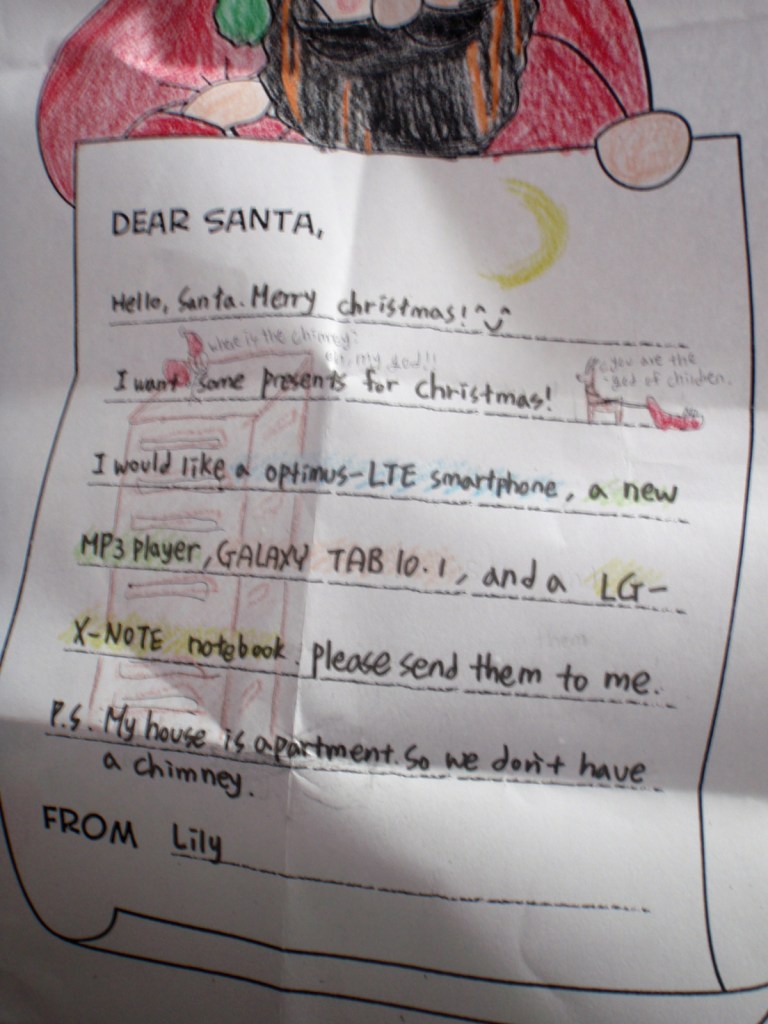 DEAR SANTA,
Hello, Santa. Merry christmas! ^_^
where is the chimney?
oh, my god!!
I want some presents for christmas!
you are the
god of children.
I would like a optimus-LTE smartphone, a new
MP3 player, GALAXY TAB 10.1, and a LG-
X-NOTE notebook. please send them to me.
P.S. My house is apartment. So we don't have
a chimney.
FROM Lily